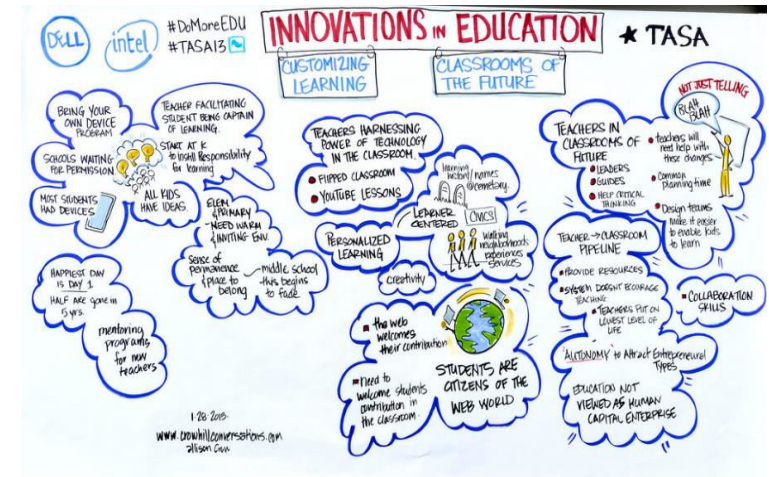 DELL
intel
#DoMoreEDU
#TASA13
INNOVATIONS IN EDUCATION
★ TASA
CUSTOMIZING
LEARNING
CLASSROOMS OF
THE FUTURE
BRING YOUR
OWN DEVICE
PROGRAM
SCHOOLS WAITING
FOR PERMISSION
MOST STUDENTS
HAD DEVICES
TEACHER FACILITATING
STUDENT BEING CAPTAIN
OF LEARNING.
START AT K
to instill Responsibility
for learning
ALL KIDS
HAVE IDEAS.
ELEM
PRIMARY
-NEED WARM
INVITING ENV.
sense of
permanence
& place to
belong
middle school
this begins
to fade
HAPPIEST DAY
IS DAY 1
HALF ARE gone in
5 yrs.
mentoring
programs
for new
teachers
1·28·2013·
www.crowhillconversations.com
TEACHERS HARNESSING
POWER OF TECHNOLOGY
IN THE CLASSROOM
FLIPPED CLASSROOM
YOUTUBE LESSONS
learning
history/names
@cemetery.
LEARNER
CENTERED
CIVICS
PERSONALIZED
LEARNING
walking
neighborhoods
experiences
services
creativity
the web
welcomes
their contribution
need to
welcome students
contribution in
the classroom.
STUDENTS ARE
CITIZENS OF THE
WEB WORLD
NOT JUST TELLING
BLAH
BLAH
TEACHERS IN
CLASSROOMS OF
FUTURE
LEADERS
GUIDES
HELP CRITICAL
THINKING
teachers will
need help with
these changes
Common
planning time
Design teams
make it easier
to enable kids
to learn
TEACHER → CLASSROOM
PIPELINE
PROVIDE RESOURCES
SYSTEM DOESNT ECOURAGE
TEACHING
TEACHERS PUT ON
LOWEST LEVEL OF
LIFE
COLLABORATION
SKILLS
'AUTONOMY' to Attract Entrepreneural
TYPES
EDUCATION NOT
VIEWED AS HUMAN
CAPITAL ENTERPRISE